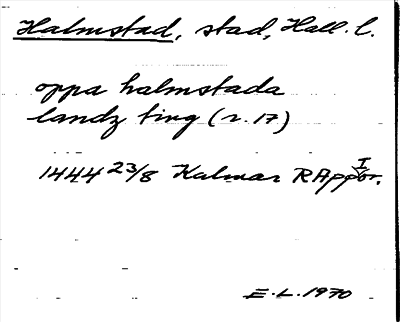 Halmstad, stad, Hall. l.
oppa halmstada
landz ting (r. 17)
1444 23/8 Kalmar RAppor. I
E.L. 1970